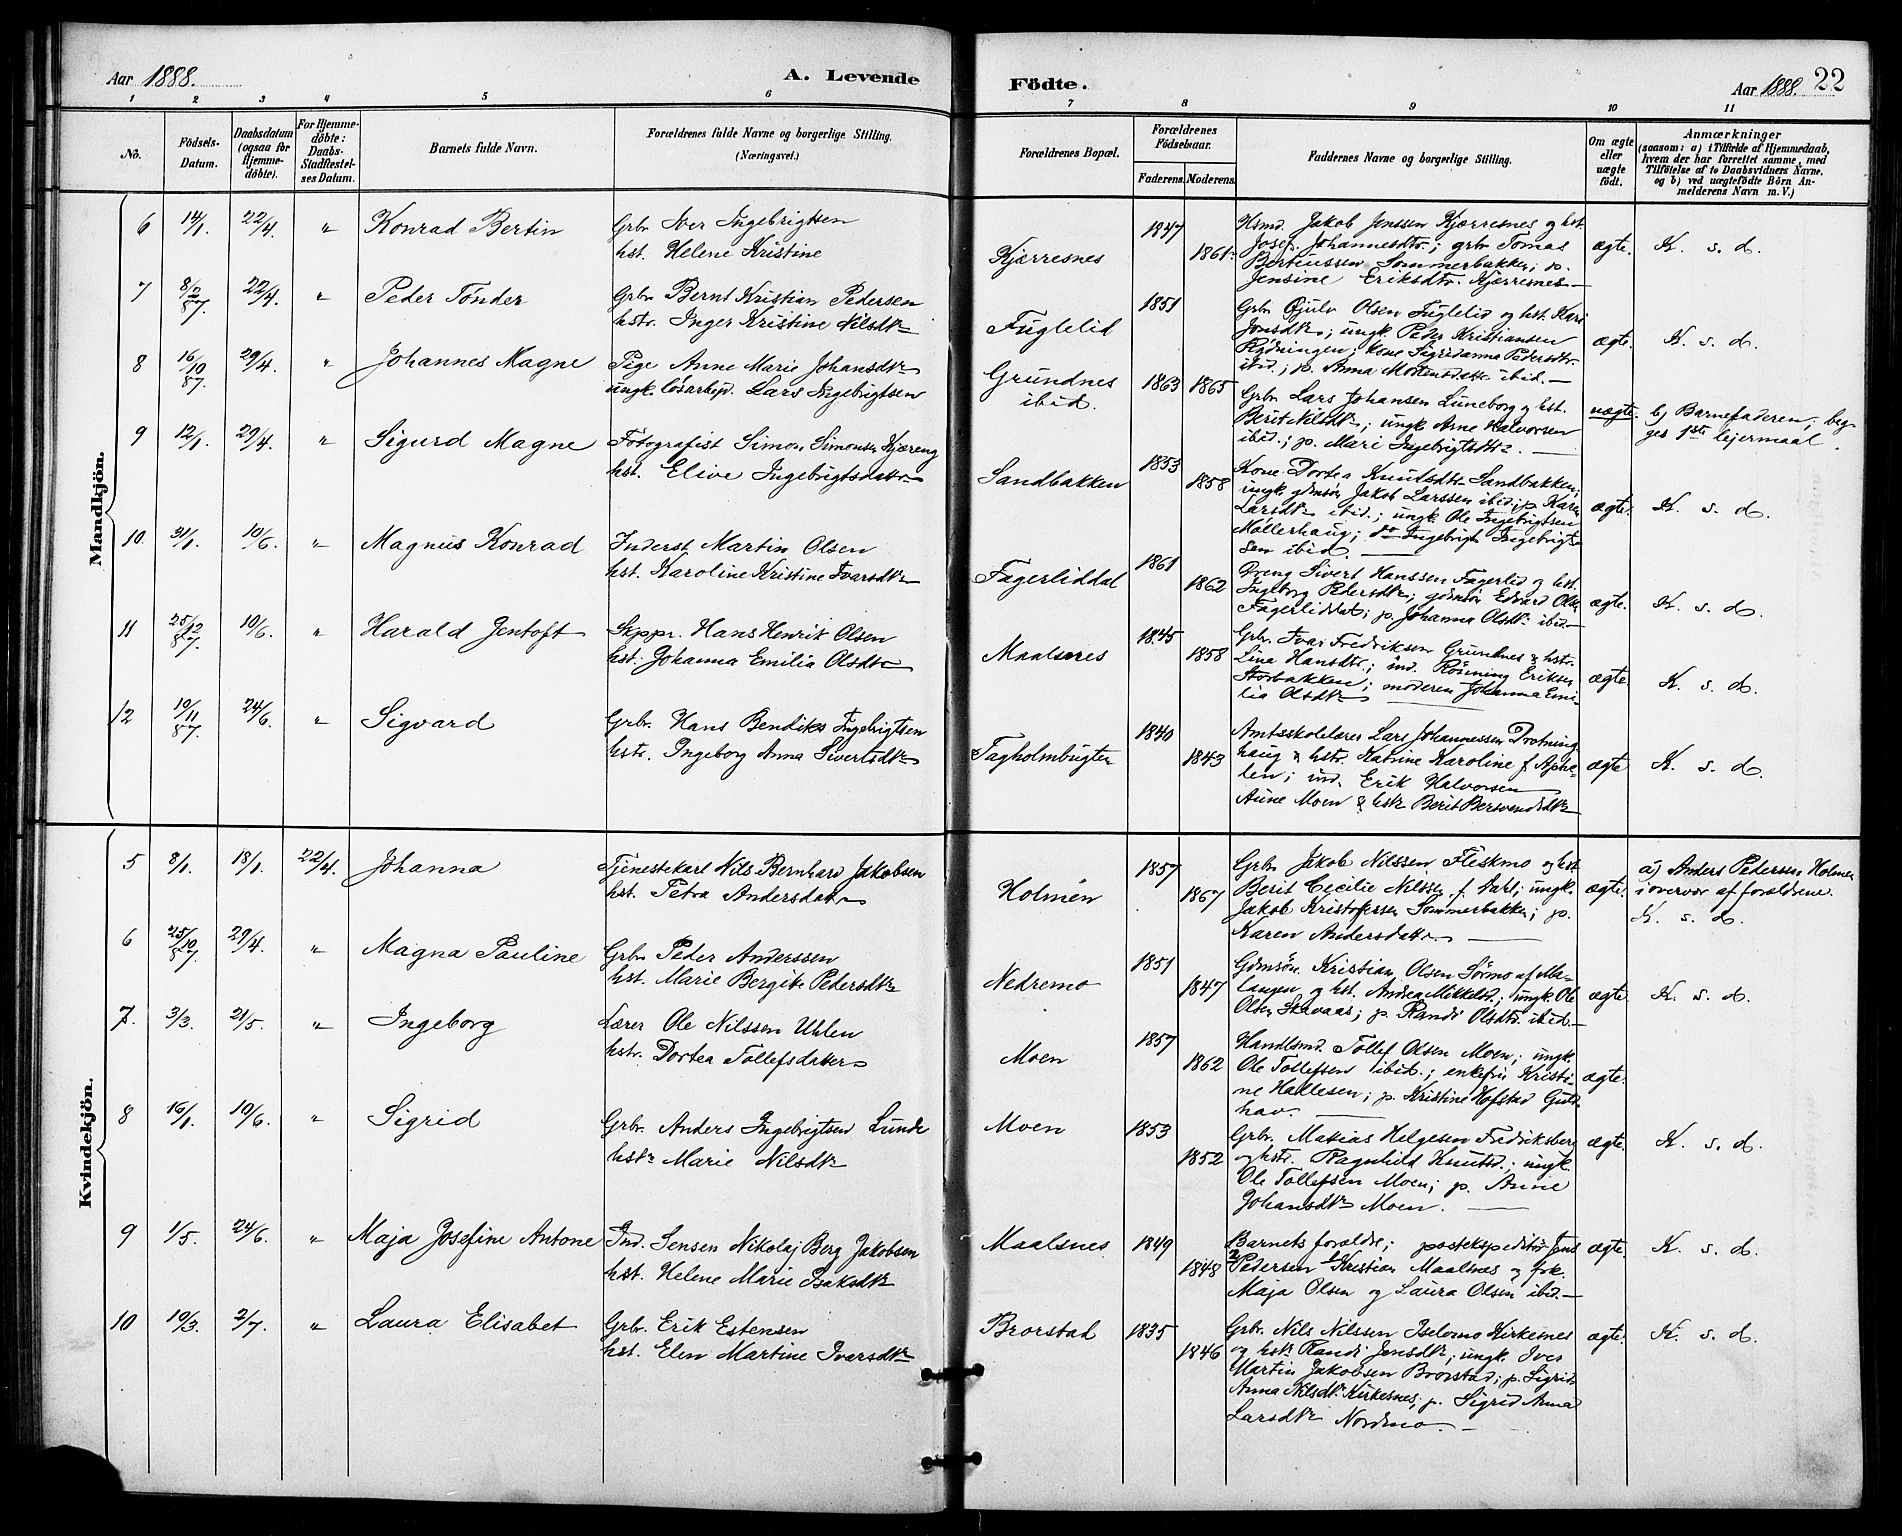 Aar 1888.
A. Levende
1 2 3 4 5 6
No.
Födsels-
Datum.
Daabsdatum
(ogsaa for
Hjemme-
döbte).
For Hjemme-
döbte:
Daabs-
Stadfæstel-
ses Datum.
Barnets fulde Navn.
Forældrenes fulde Navne og borgerlige Stilling.
(Næringsvei.)
Mandkjön.
6 14/1. 22/4. " Konrad Bertin Grbr. Iver Ingebrigtsen
hst. Helene Kristine
7 8/2 87. 22/4. " Peder Tönder Grbr. Bernt Kristian Pedersen
hstr. Inger Kristine Nilsdtr
8 16/10 87. 29/4. " Johannes Magne Pige Anne Marie Johansdtr
ungk. lösarbeid. Lars Ingebrigtsen
9 12/1. 29/4. " Sigurd Magne Fotografist Simon Simonsen Kjæreng
hst. Elive Ingebrigtsdatter
10. 31/1. 10/6. " Magnus Konrad Inderst Martin Olsen
hst. Karoline Kristine Ivarsdtr
11 25/12 87. 10/6. " Harald Jentoft Skppr. Hans Henrik Olsen
hst. Johanna Emilia Olsdtr
12 19/11 87. 24/6. " Sigvard Grbr. Hans Bendiks Ingebrigtsen
hstr. Ingeborg Anna Sivertsdtr
Kvindekjön.
5 8/1. 18/1. 22/4. Johanna Tjenestekarl Nils Bernhard Jakobsen
hst. Petra Andersdatr
6 25/10 87. 29/4. " Magna Pauline Grbr. Peder Anderssen
hst. Marie Bergite Pedersdtr
7. 3/3. 21/5. " Ingeborg Lærer Ole Nilssen Uhlen
hstr. Dortea Tollefsdatter
8 16/1. 10/6. " Sigrid Grbr. Anders Ingebrigtsen Lunde
hstr Marie Nilsdtr
9 1/5. 24/6. " Maja Josefine Antone Ind. Jensen Nikolaj Berg Jakobsen
hst. Helene Marie Isaksdtr
10 19/3. 2/7. " Laura Elisabet Grbr. Erik Estensen
hst. Elen Martine Ivarsdtr
Födte.
Aar 1888. 22
7 8 9 10 11
Forældrenes Bopæl.
Forældrenes
Födselsaar.
Faderens. Moderens.
Faddernes Navne og borgerlige Stilling.
Om ægte
eller
uægte
födt.
Anmærkninger
(saasom: a) i Tilfælde af Hjemmedaab,
hvem der har forrettet samme, med
Tilföielse af to Daabsvidners Navne,
og b) ved uægtefödte Börn An-
melderens Navn m. V.)
Kjærresnes 1847 1861 ægte. K. s. d.
Hsmd. Jakob Jenssen Kjærresnes og hst.
Josef. Johannesdtr.; grbr Tomas
Bertiussen Sommerbakken; p.
Jensine Eriksdtr. Kjærresnes
Fuglelid 1851 ægte. K. s. d.
Grbr Gjulv Olsen Fuglelid og hst. Kari
Jonsdtr; ungk. Peder Kristiansen
Rydningen; kone Sigridanna Pedersdtr.
ibid; p. Anna Mortensdatr. ibid.
Grundnes
ibid.
1863 1865 uægte. b) Barnefaderen, beg-
ges 1ste lejermaal.
Grbr Lars Johansen Lüneborg og hst.
Berit Nilsdtr; ungk Arne Halvorsen
ibid; p. Mari Ingebrigtsdtr.
Sandbakken 1853 1858 ægte. K. s. d.
Kone Dortea Knutsdtr Sandbakken;
ungk. gdmsön Jakob Larssen ibid; p. Karen
Larsdtr ibid.; ungk. Ole Ingebrigtsen
Mollerhaug; do Ingebrigt Ingebrigt-
sen ibid.
Fagerliddal 1861 1862 ægte. K. s. d.
Dreng Sivert Hanssen Fagerlid og hst.
Ingeborg Pedersdtr; gdmsön Edvard Ols.
Fagerliddal; p. Johanna Olsdtr. ibid.
Maalsnes 1845 1858 ægte. K. s. d.
Grbr. Ivar Fredriksen Grundnes & hstr.
Lina Hansdtr.; ind. Rönning Eriksen
Storbakken; moderen Johanna Emi-
lia Olsdtr
Tagholmbugten 1840 1843 ægte K. s. d.
Amtsskolelærer Lars Johannessen Drotning-
haug & hstr. Katrine Karoline f. Aphe-
len; ind. Erik Halvorsen
Aune Moen & hstr Berit Bersvendsdtr
Holmen 1857 1867 ægte. a) Anders Pedersen Holmen
i overvær af forældrene.
K. s. d.
Grbr Jakob Nilssen Fleskmo og hst.
Berit Cecilie Nilssen f. Aarl; ungk.
Jakob Kristofersen Sommerbakken; p.
Karen Andersdatr.
Nedremo 1851 1847 ægte. K. s. d.
Gdmsön. Kristian Olsen Sörmo af Ma-
langen og hst. Andrea Mikkelsd.; ungk. Ole
Olsen Skavaas; p. Randi Olsdtr. ibid.
Moen 1857 1862 ægte.
Handlsmd. Tollef Olsen Moen; ungk.
Ole Tollefsen ibid.; enkefru Kristi-
ne Hallesen; p. Kristine Hofstad Guld-
hav.
Moen 1853 1852 ægte. K. s. d.
Grbr. Matias Helgesen Fredriksberg
og hstr. Ragnhild Knutsd.; ungk.
Ole Tollefsen Moen; p. Anne
Johansdtr Moen.
Maalsnes 1849 1848 ægte. K. s. d.
Barnets forældre; postekspeditör Jens
2 Pedersen 1 Kristian Maalsnes og frk.
Maja Olsen og Laura Olsen ibid.
Brorstad 1835 1846 ægte. K. s. d.
Grbr. Nils Nilssen Iselvmo Kirkesnes
og hstr Randi Jensdtr; ungk. Iver
Martin Jakobsen Brorstad; p. Sigrid
Anna Nilsdtr. Kirkesnes; p. Sigrid Anna
Larsdtr Nordmo.